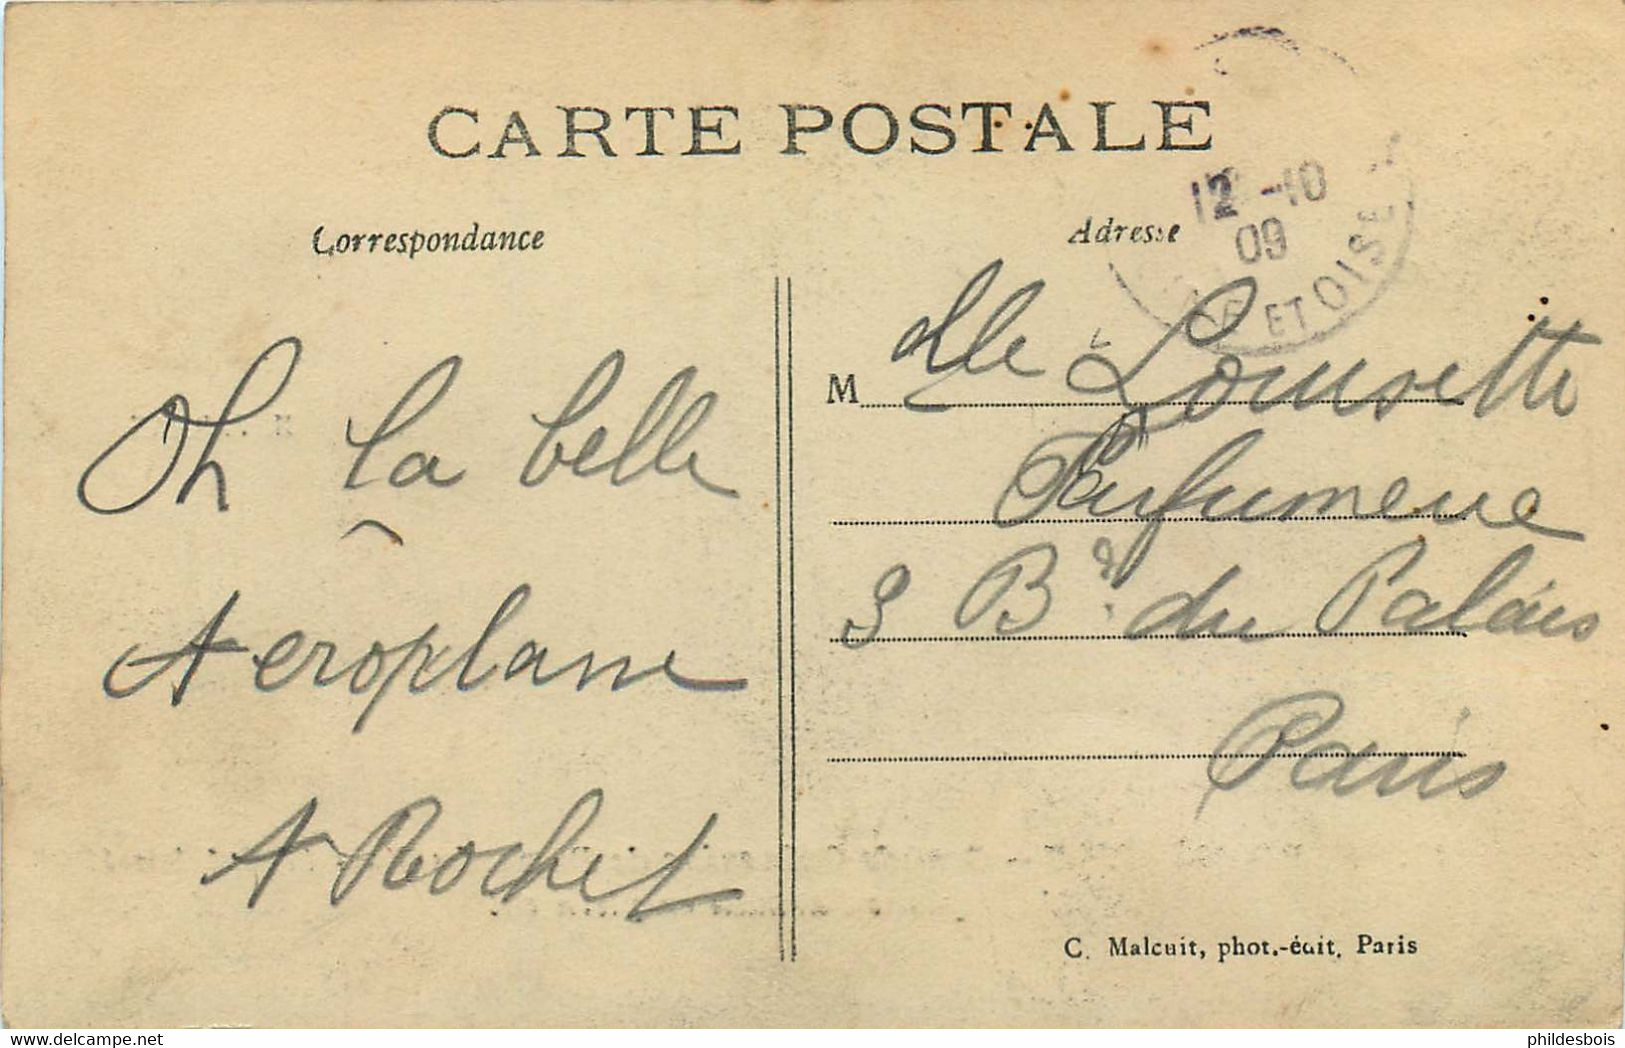 CARTE POSTALE
Correspondance
Adresse
12 -10
09
ET OISE
Oh la belle
Aeroplane
A Rochet
M lle Lousette
Parfumerie
3 Bd du Palais
Paris
C. Malcuit, phot.-édit. Paris
www.delcampe.net
phildesbois